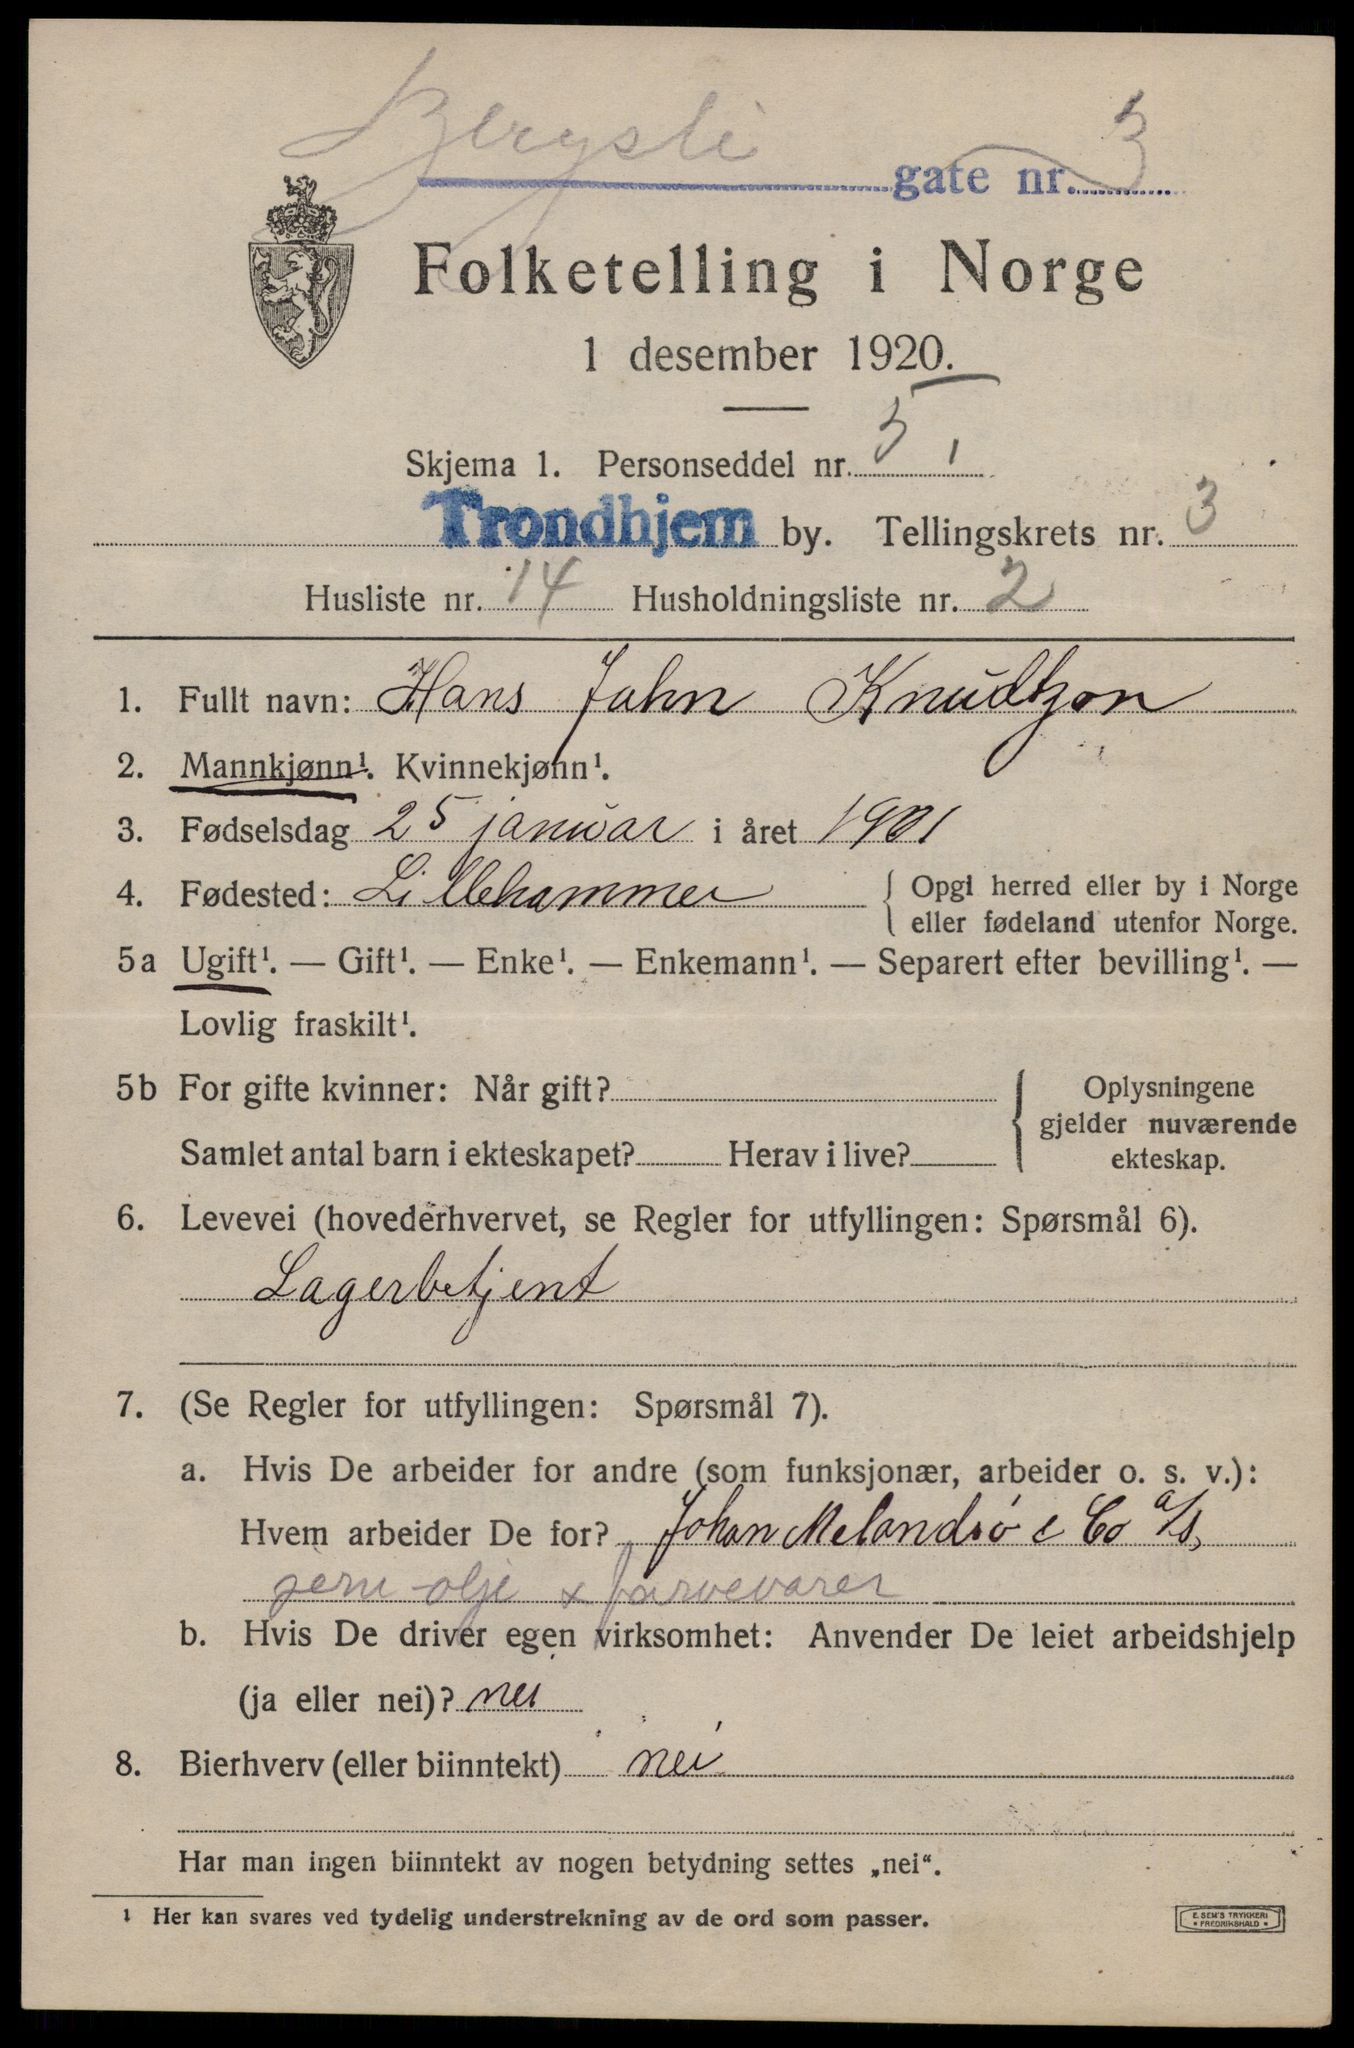 Bergsli gate nr. 3
Folketelling i Norge
1 desember 1920.
Skjema 1. Personseddel nr. 5 1
Trondhjem by. Tellingskrets nr. 3
Husliste nr. 14 Husholdningsliste nr. 2
1. Fullt navn: Hans John Knudtzon
2. Mannkjønn¹. Kvinnekjønn¹.
3. Fødselsdag 25 januar i året 1901
4. Fødested: Lillehammer { Opgi herred eller by i Norge
eller fødeland utenfor Norge.
5a Ugift¹. — Gift¹. — Enke¹. — Enkemann¹. — Separert efter bevilling¹. —
Lovlig fraskilt¹.
5b For gifte kvinner: Når gift? { Oplysningene
gjelder nuværende
Samlet antal barn i ekteskapet? Herav i live? ekteskap.
6. Levevei (hovederhvervet, se Regler for utfyllingen: Spørsmål 6).
Lagerbetjent
7. (Se Regler for utfyllingen: Spørsmål 7).
a. Hvis De arbeider for andre (som funksjonær, arbeider o. s. v.):
Hvem arbeider De for? Johan Melandsø & Co a/s,
jern-olje & farvevarer
b. Hvis De driver egen virksomhet: Anvender De leiet arbeidshjelp
(ja eller nei)? nei
8. Bierhverv (eller biinntekt) nei
Har man ingen biinntekt av nogen betydning settes „nei“.
¹ Her kan svares ved tydelig understrekning av de ord som passer.
E. SEM'S TRYKKERI
FREDRIKSHALD